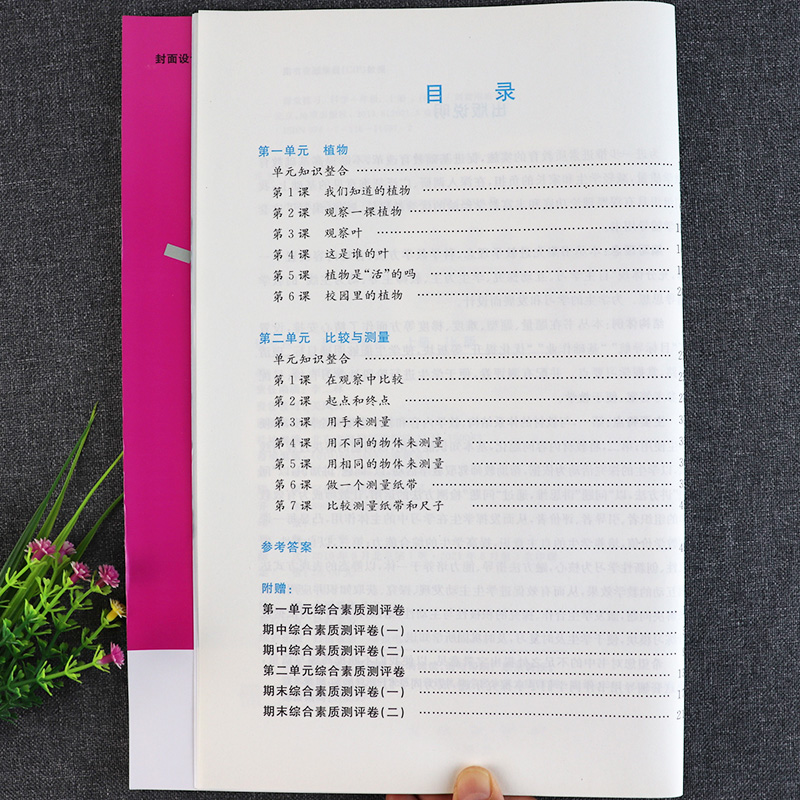 封面设
目 录
第一单元 植物
单元知识整合
第1课 我们知道的植物
第2课 观察一棵植物
第3课 观察叶 1
第4课 这是谁的叶 1
第5课 植物是“活”的吗 1
第6课 校园里的植物 2
第二单元 比较与测量
单元知识整合 2
第1课 在观察中比较 2
第2课 起点和终点 2
第3课 用手来测量 3
第4课 用不同的物体来测量 3
第5课 用相同的物体来测量 3
第6课 做一个测量纸带 3
第7课 比较测量纸带和尺子 4
参考答案 4
附赠：
第一单元综合素质测评卷
期中综合素质测评卷(一)
期中综合素质测评卷(二)
第二单元综合素质测评卷 13
期末综合素质测评卷(一) 17
期末综合素质测评卷(二) 21